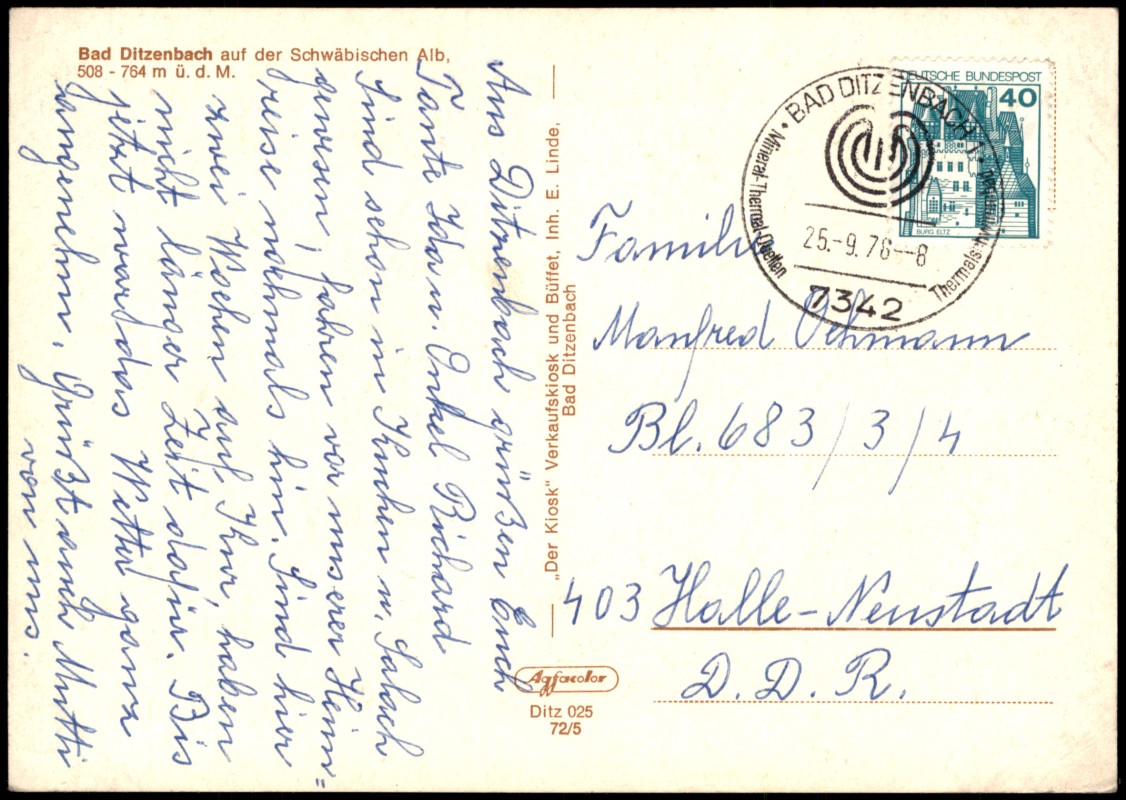 Bad Ditzenbach auf der Schwäbischen Alb,
508 - 764 m ü. d. M.
Aus Ditzenbach grüßen Euch
Tante Ida u. Onkel Richard
Sind schon in Kuchen u. Salach
gewesen, fahren vor unserer Heim=
reise nochmals hin. Sind hier
zwei Wochen auf Kur, haben
nicht länger Zeit dafür. Bis
jetzt war das Wetter ganz
angenehm. Grüßt auch Mutti
von uns.
„Der Kiosk" Verkaufskiosk und Büffet, Inh. E. Linde,
Bad Ditzenbach
Agfacolor
Ditz 025
72/5
DEUTSCHE BUNDESPOST
40
BURG ELTZ
BAD DITZENBACH 1
Mineral-Thermal-Quellen
Thermal
25.-9.78--8
7342
Familie
Manfred Oehmann
Bl. 683/3/4
403 Halle-Neustadt
D. D. R.